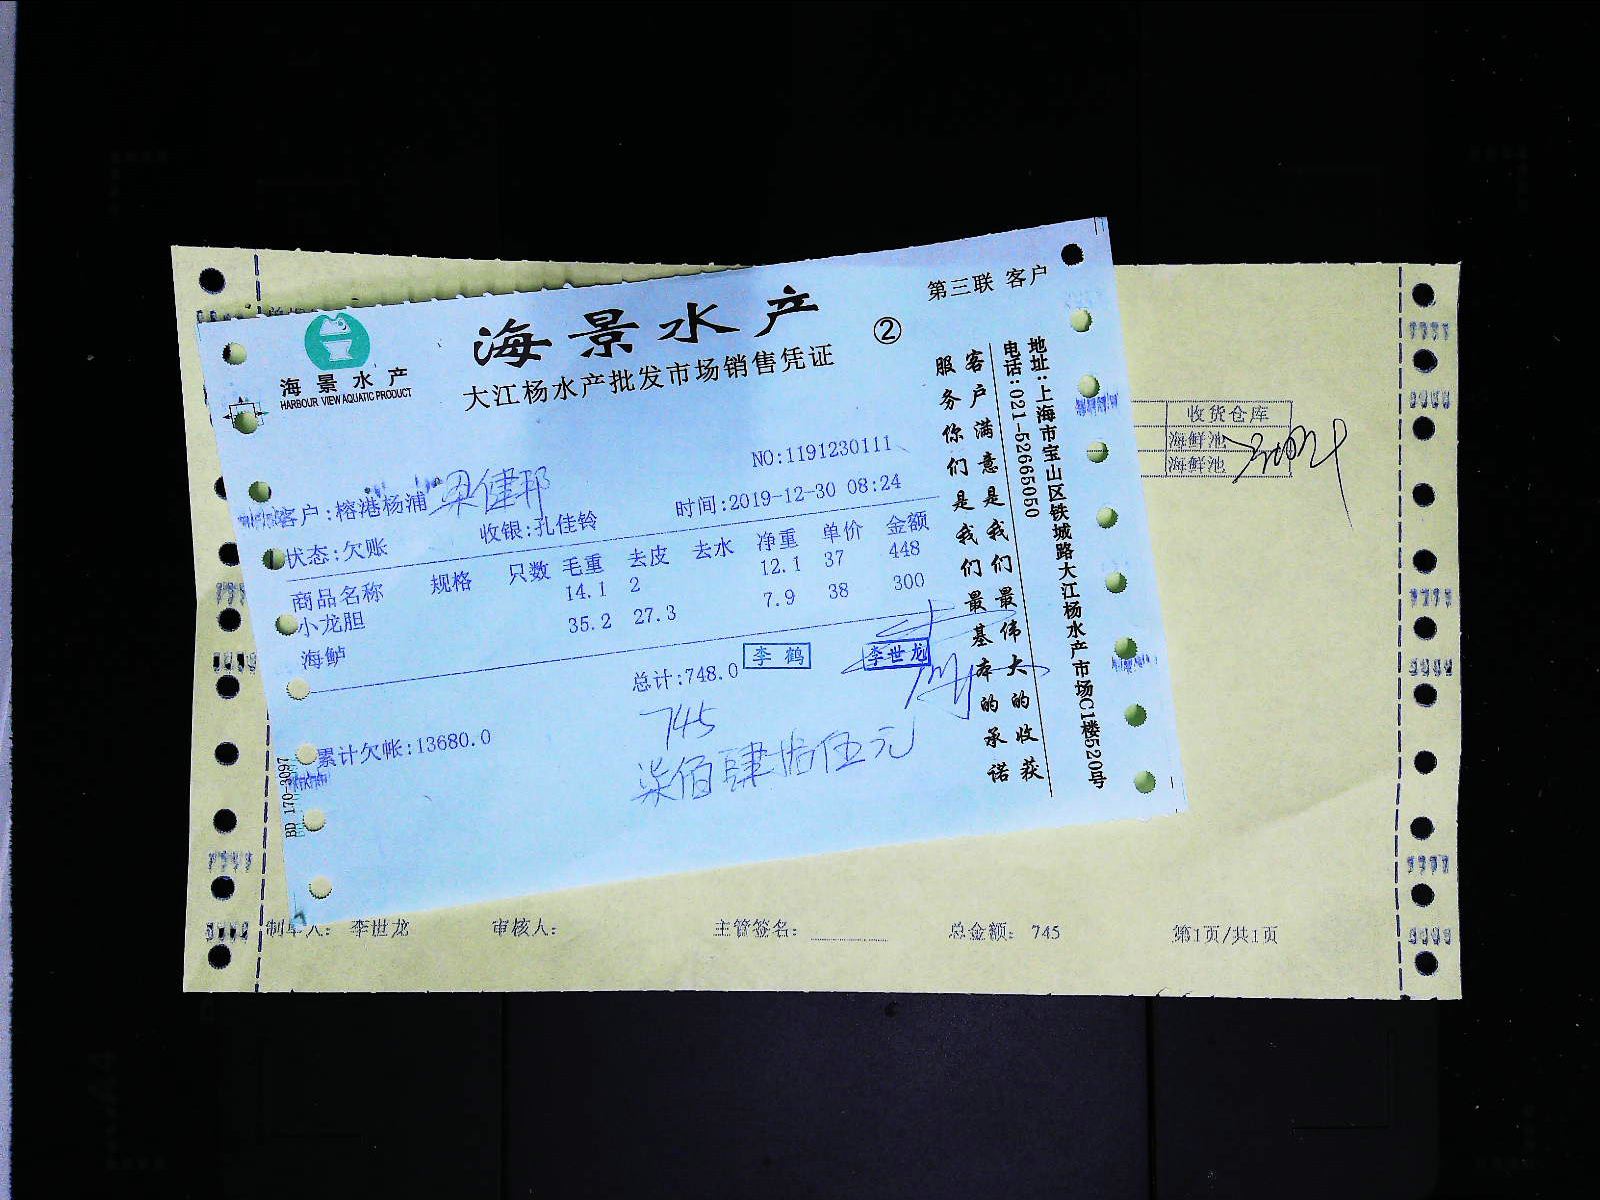 海景水产
HARBOUR VIEW AQUATIC PRODUCT
海景水产
大江杨水产批发市场销售凭证
②
第三联 客户
NO:1191230111
客户:榕港杨浦 梁健邦
收银:孔佳铃
时间:2019-12-30 08:24
状态:欠账
商品名称 规格 只数 毛重 去皮 去水 净重 单价 金额
小龙胆 14.1 2 12.1 37 448
海鲈 35.2 27.3 7.9 38 300
总计:748.0
李鹤
李世龙
745
累计欠帐:13680.0
柒佰肆拾伍元
BD 170-3097
客户满意是我们最伟大的收获
服务你们是我们最基本的承诺
地址:上海市宝山区铁城路大江杨水产市场C1楼520号
电话:021-52665050
收货仓库
海鲜池
海鲜池
制单人: 李世龙 审核人: 主管签名: 总金额: 745 第1页/共1页